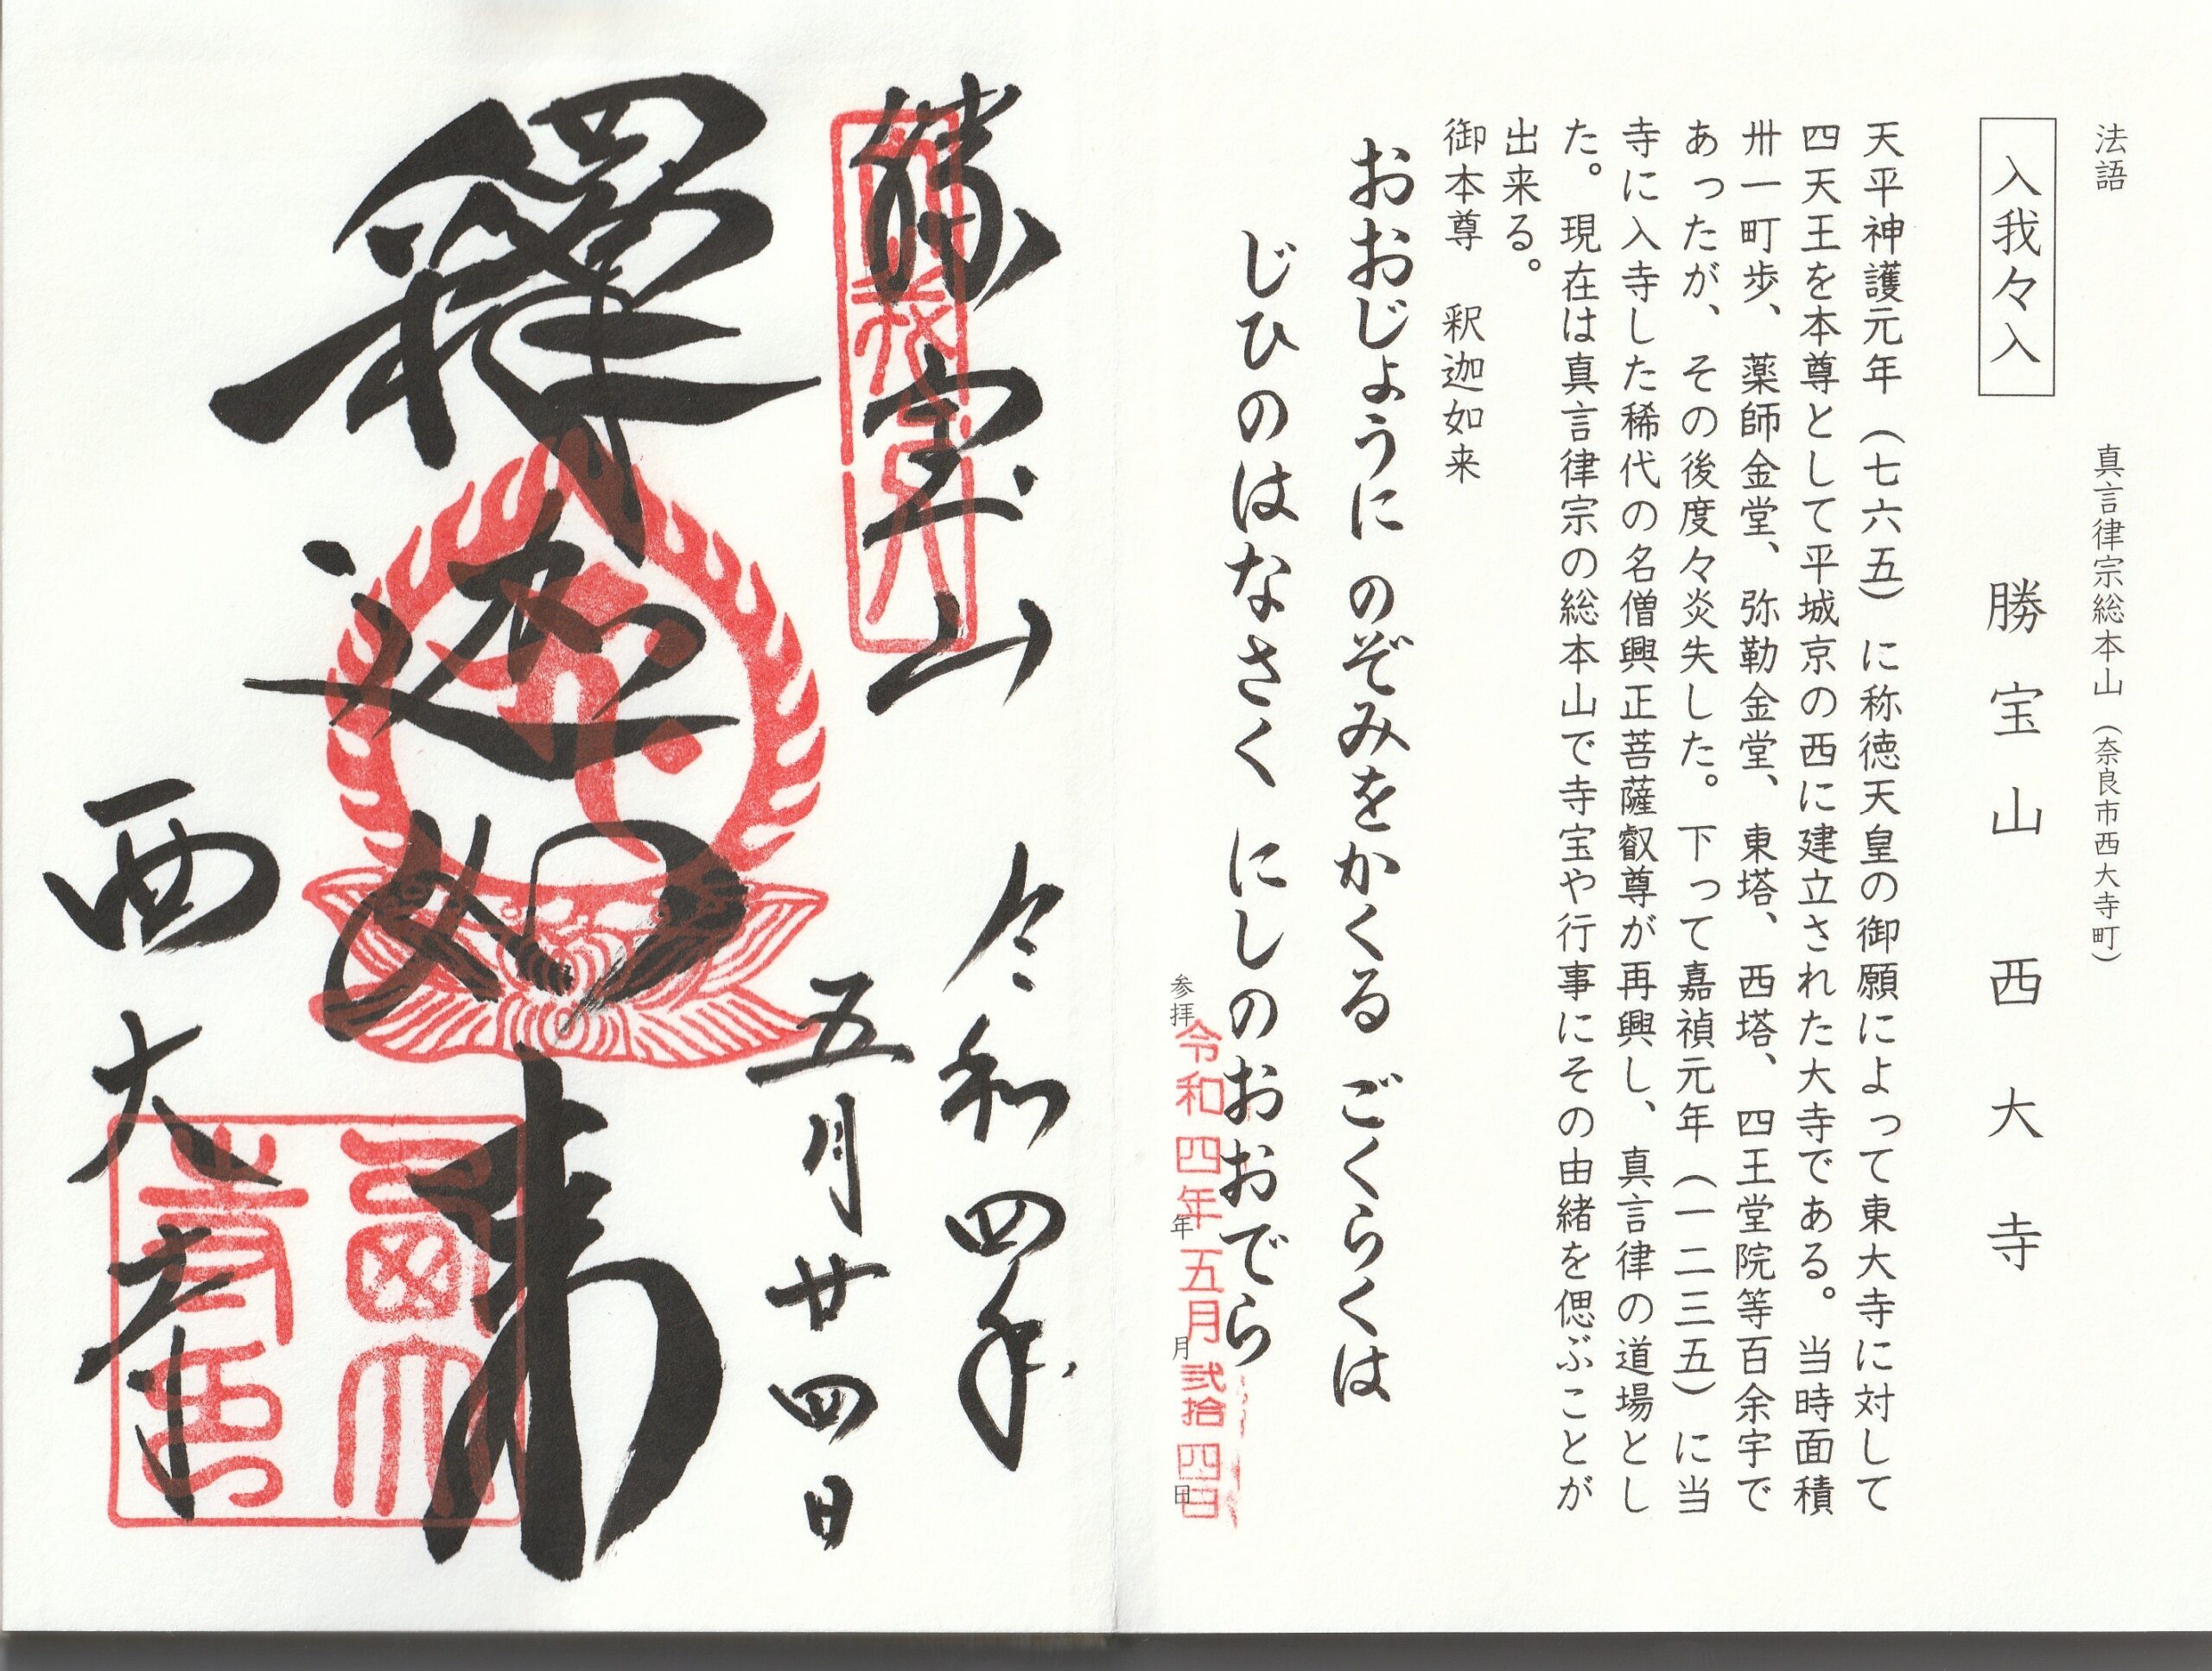 法語
真言律宗総本山（奈良市西大寺町）
入我々入
勝宝山西大寺
天平神護元年（七六五）に称徳天皇の御願によって東大寺に対して
四天王を本尊として平城京の西に建立された大寺である。当時面積
卅一町歩、薬師金堂、弥勒金堂、東塔、西塔、四王堂院等百余宇で
あったが、その後度々炎失した。下って嘉禎元年（一二三五）に当
寺に入寺した稀代の名僧興正菩薩叡尊が再興し、真言律の道場とし
た。現在は真言律宗の総本山で寺宝や行事にその由緒を偲ぶことが
出来る。
御本尊　釈迦如来
おおじょうに のぞみをかくる ごくらくは
じひのはなさく にしのおおでら
参拝
年
月
日
令和四年五月弐拾四日
勝宝山
入我々入
令和四年
五月廿四日
釋迦如来
西大寺